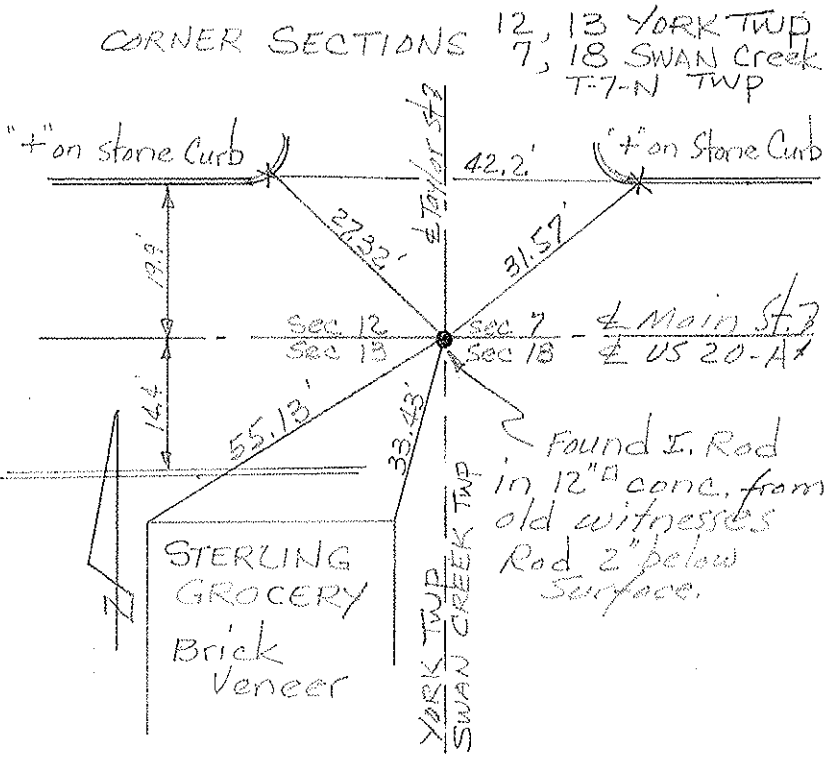 CORNER SECTIONS 12, 13 YORK TWP
7, 18 SWAN Creek
T-7-N TWP
"+" on stone Curb
"+" on Stone Curb
42.2'
℄ Taylor St?
27.32'
31.57'
19.9'
Sec 12
Sec 7
℄ Main St.?
Sec 13
Sec 18
℄ US 20-A
14.4'
55.13'
33.43'
Found I. Rod
in 12"□ conc. from
old witnesses
Rod 2" below
Surface.
STERLING
GROCERY
Brick
Veneer
YORK TWP
SWAN CREEK TWP